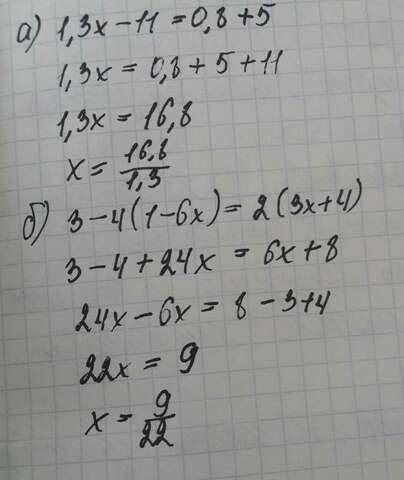 а) 1,3x - 11 = 0,8 + 5
1,3x = 0,8 + 5 + 11
1,3x = 16,8
x = 16,8/1,3
б) 3 - 4(1 - 6x) = 2(3x + 4)
3 - 4 + 24x = 6x + 8
24x - 6x = 8 - 3 + 4
22x = 9
x = 9/22